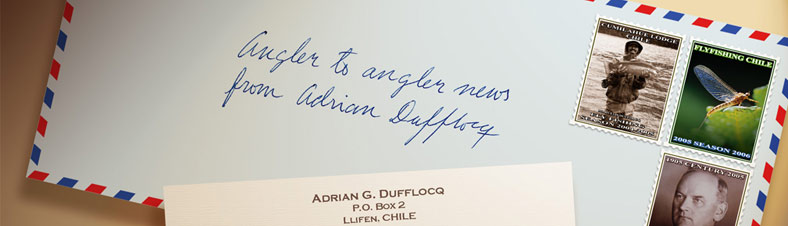 Angler to angler news
from Adrian Dufflocq
ADRIAN G. DUFFLOCQ
P.O. BOX 2
LLIFEN, CHILE
CUMILAHUE LODGE
CHILE
FLYFISHING CHILE
2005 SEASON 2006
1905 CENTURY 2005